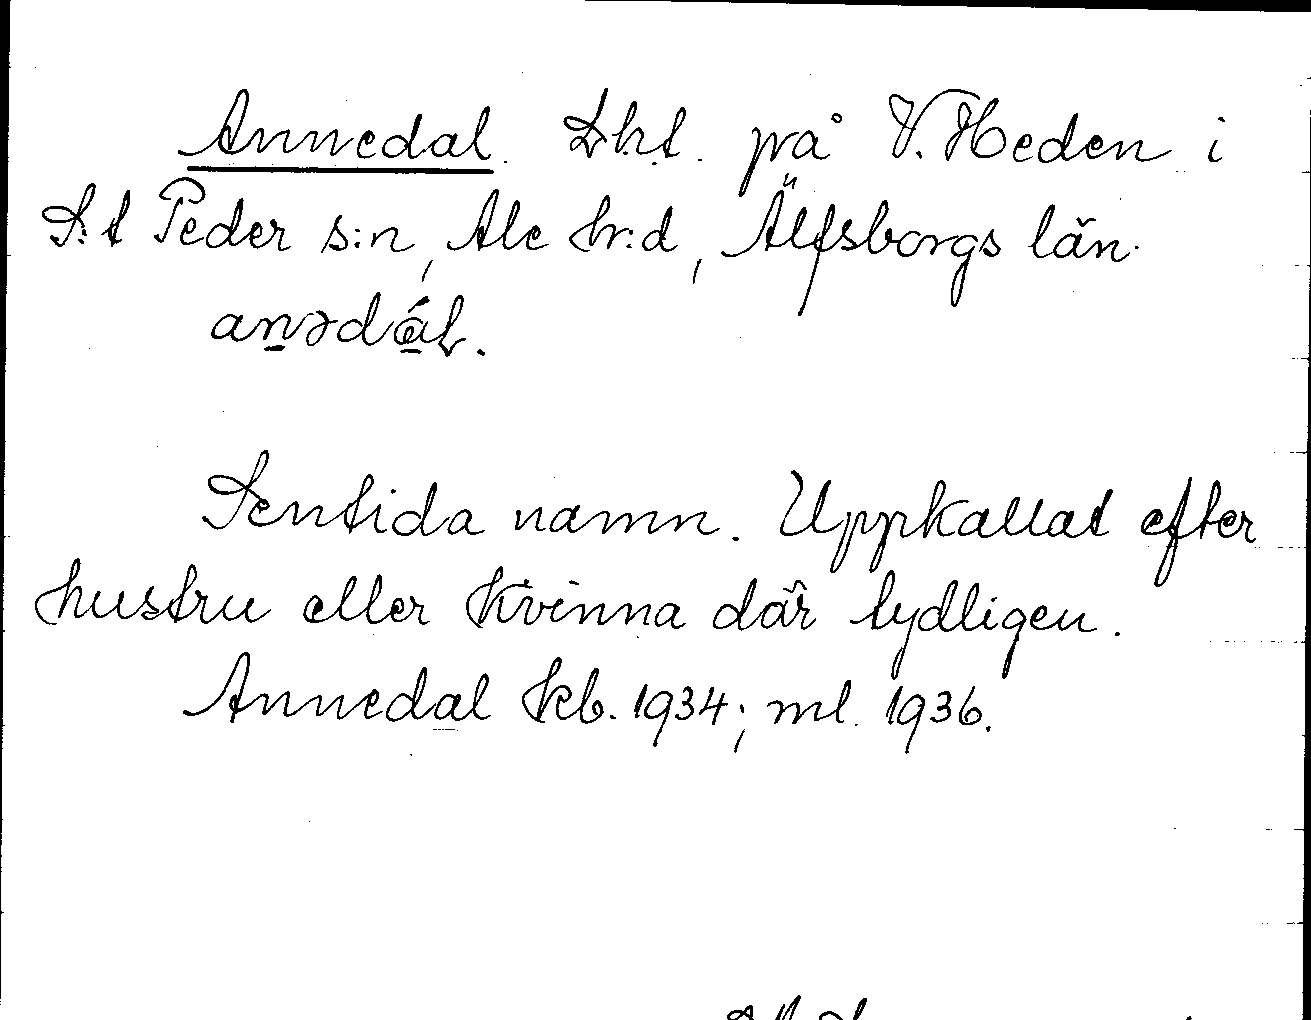 Annedal. Lht. på V. Heden i
S:t Peder s:n, Ale hr:d, Älfsborgs län.
anədál.
Sentida namn. Uppkallat efter
hustru eller kvinna där tydligen.
Annedal kb. 1934; ml. 1936.